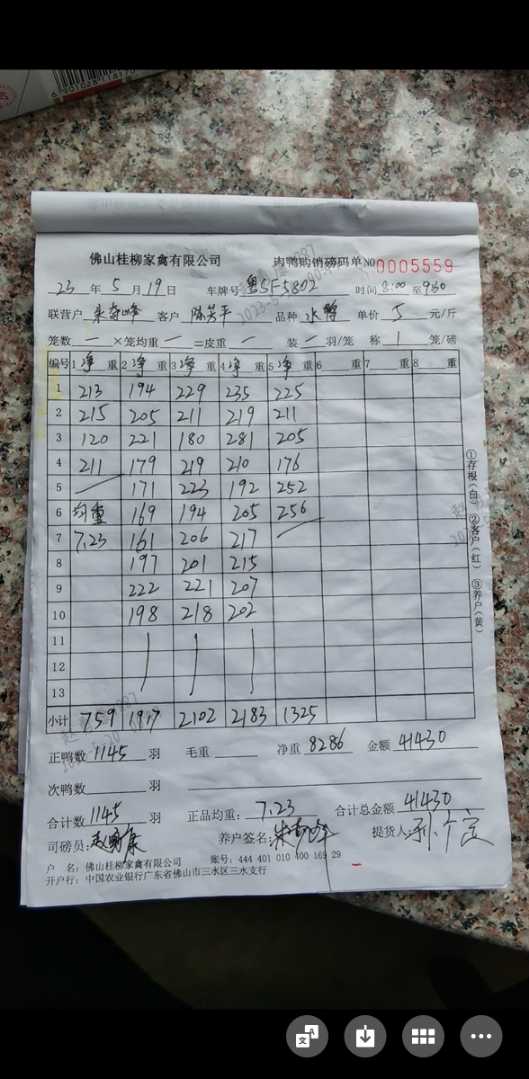 佛山桂柳家禽有限公司 肉鸭购销磅码单 NO 0005559
23 年 5 月 19 日 车牌号 粤SF5802 时间 8:00 至 9:30
联营户 客户 品种 水鸭 单价 5 元/斤
笼数 一 ×笼均重 一 =皮重 一 装 一 羽/笼 称 1 笼/磅
编号 1 净 重 2 净 重 3 净 重 4 净 重 5 净 重 6 重 7 重 8 重
1 213 194 229 235 225
2 215 205 211 219 211
3 120 221 180 281 205
4 211 179 219 210 176
5 171 223 192 252
6 均重 169 194 205 256
7 7.23 161 206 217
8 197 201 215
9 222 221 207
10 198 218 202
11
12
13
小计 759 1917 2102 2183 1325
正鸭数 1145 羽 毛重 净重 8286 金额 41430
次鸭数 羽
合计数 1145 羽 正品均重: 7.23 合计总金额 41430
司磅员: 养户签名: 提货人:
户 名: 佛山桂柳家禽有限公司 账号: 444 401 010 400 169 29
开户行: 中国农业银行广东省佛山市三水区三水支行
①存根(白) ②客户(红) ③养户(黄)